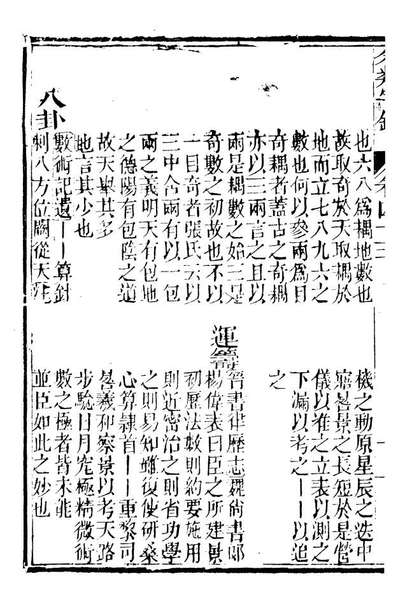 卷四十三
也六八爲耦地數也
故取奇於天取耦於
地而立七八九六之
數也何以參兩爲目
奇耦者蓋古之奇耦
亦以三兩言之且以
兩是耦數之始三是
奇數之初故也不以
一目奇者張氏云以
三中含兩有以一包
兩之義明天有包地
之德陽有包陰之道
故天舉其多
地言其少也
八卦
數術記遺——算針
刺八方位闕從天
機之動原星辰之迭中
晷景之長短於是營
儀以准之立表以測之
下漏以考之——以追
之
運籌
晉書律歷志魏尚書郎
楊偉表曰臣之所建景
初歷法數則約要施用
則近密治之則省功學
之則易知雖復使研桑
心算隸首——重黎司
晷羲和察景以考天路
步驗日月究極精微術
數之極者皆未能
並臣如此之妙也